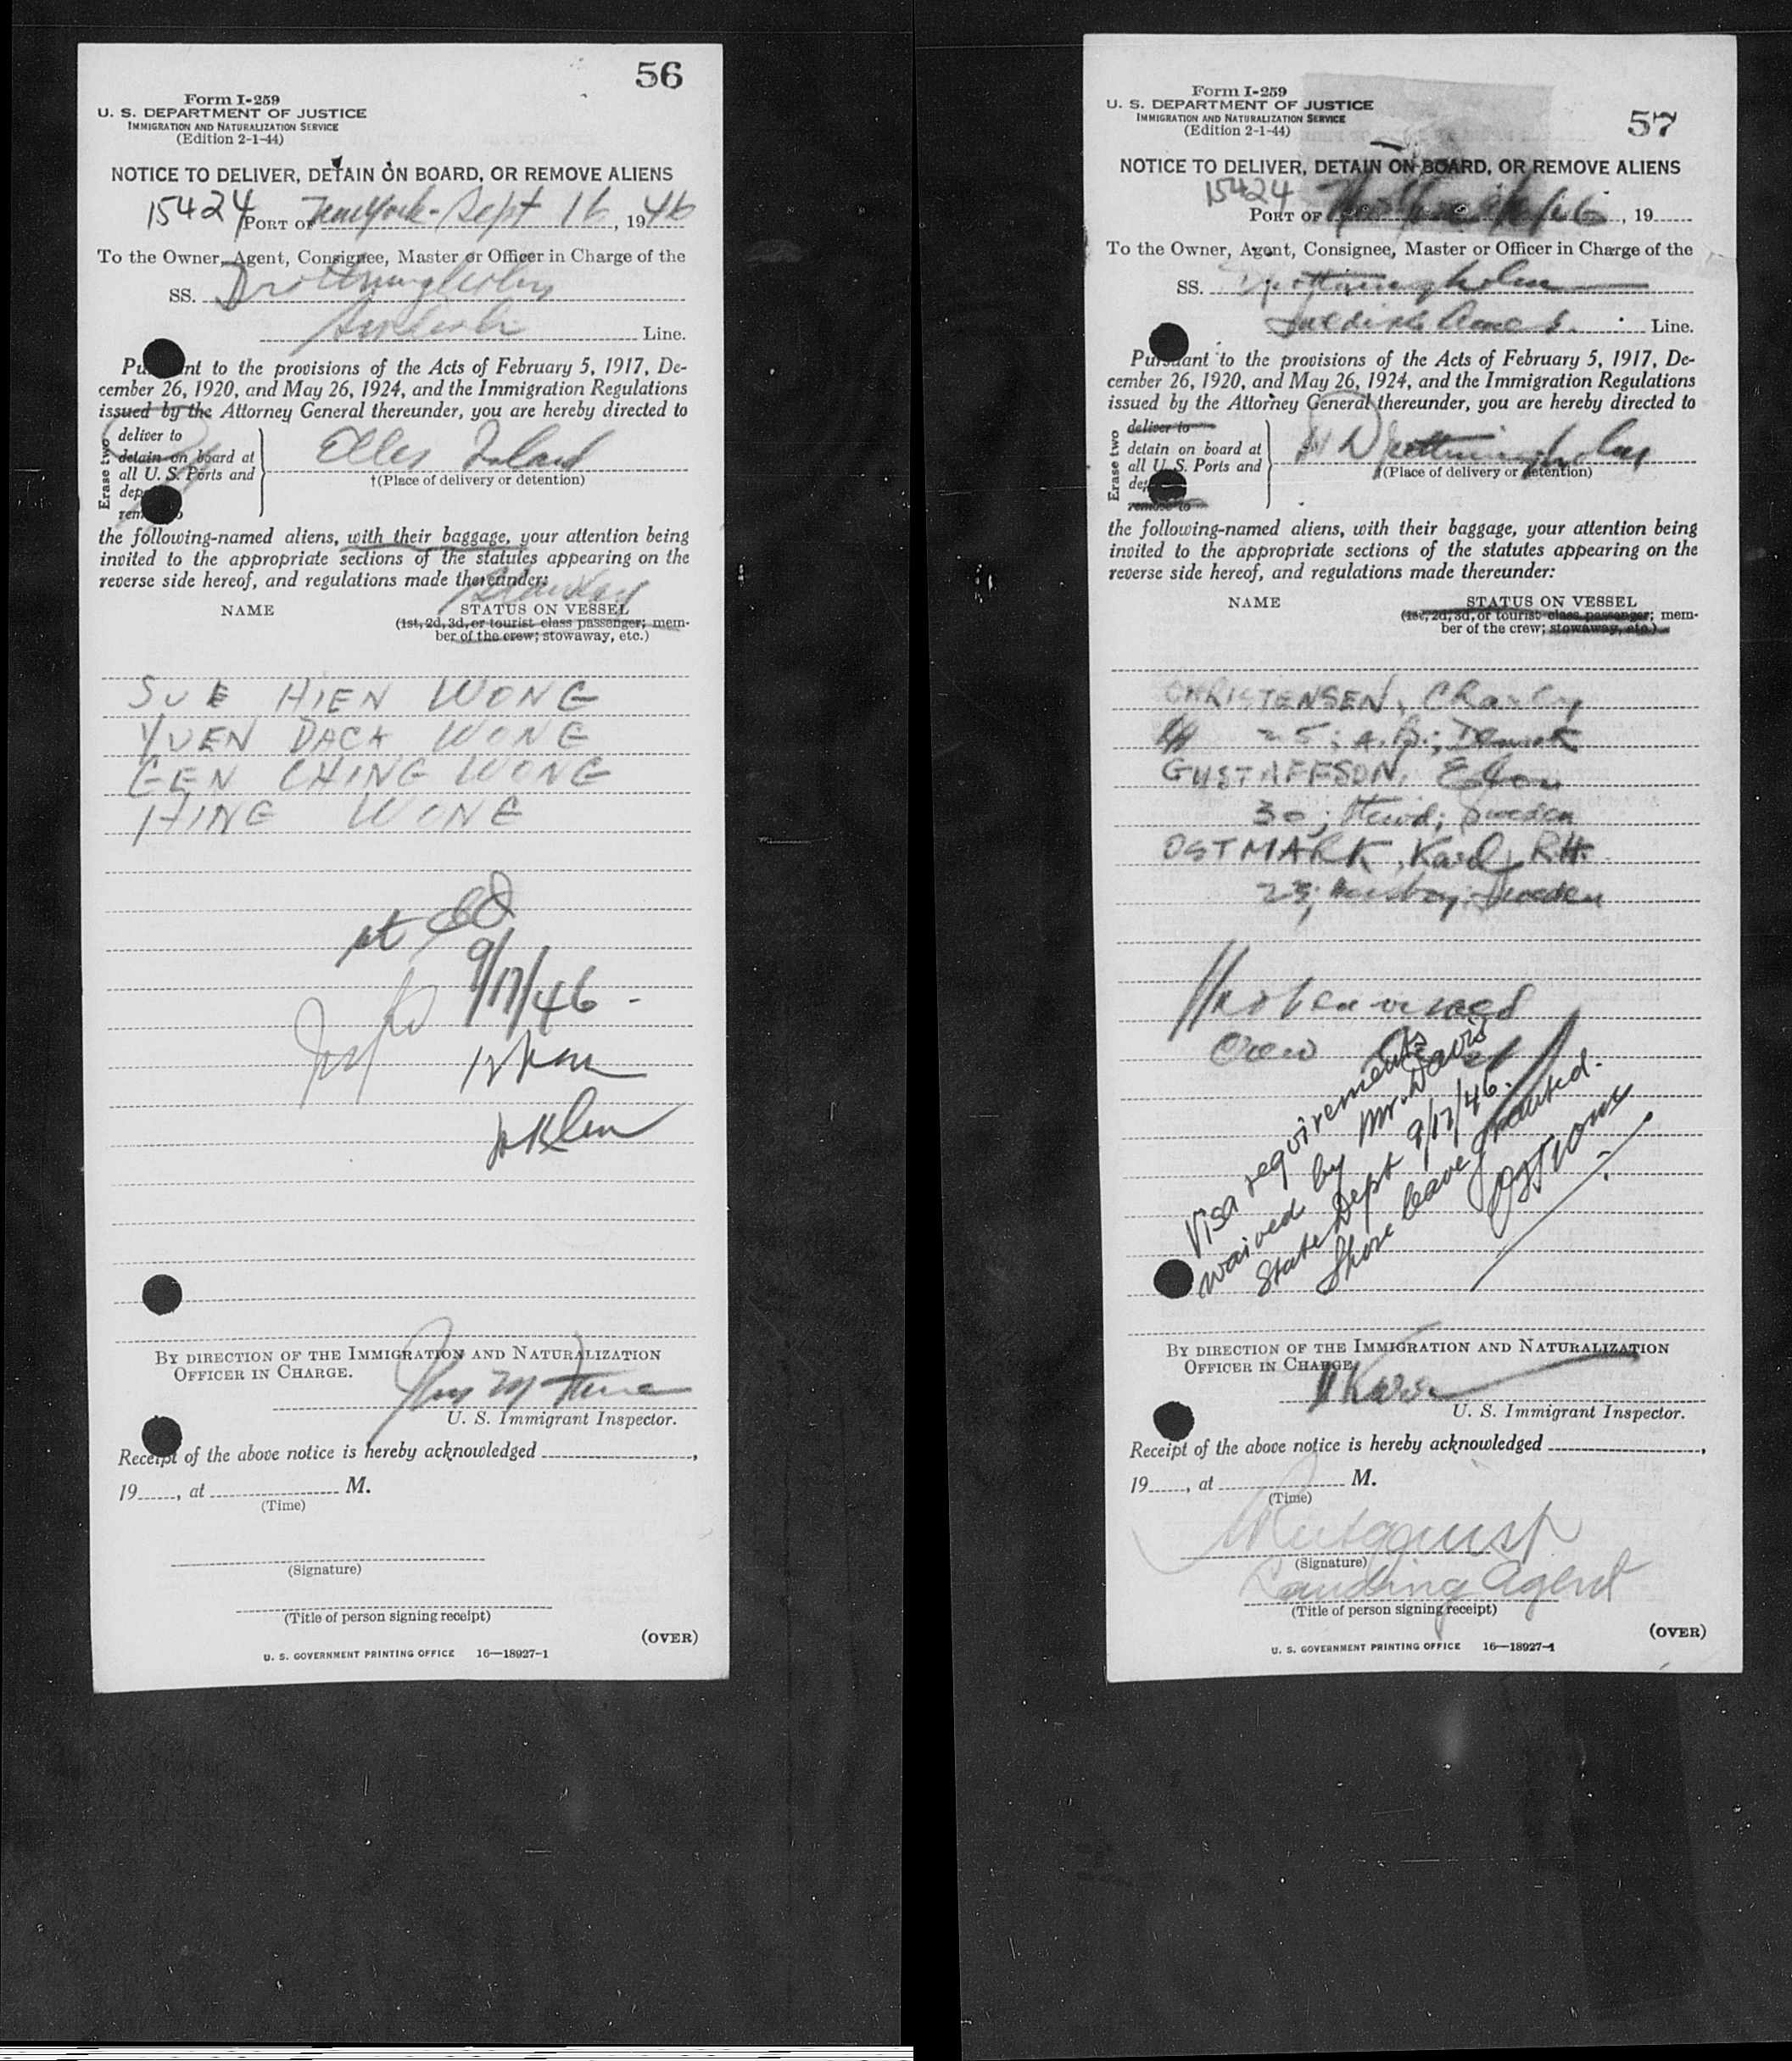 56
Form I-259
U. S. DEPARTMENT OF JUSTICE
IMMIGRATION AND NATURALIZATION SERVICE
(Edition 2-1-44)
NOTICE TO DELIVER, DETAIN ON BOARD, OR REMOVE ALIENS
15424
PORT OF New York - Sept 16, 1946
To the Owner, Agent, Consignee, Master or Officer in Charge of the
SS. Drottningholm
Swedish Line.
Pursuant to the provisions of the Acts of February 5, 1917, De-
cember 26, 1920, and May 26, 1924, and the Immigration Regulations
issued by the Attorney General thereunder, you are hereby directed to
Erase two
deliver to
detain on board at
all U. S. Ports and
dep
remove to
Ellis Island
†(Place of delivery or detention)
the following-named aliens, with their baggage, your attention being
invited to the appropriate sections of the statutes appearing on the
reverse side hereof, and regulations made thereunder:
NAME
STATUS ON VESSEL
(1st, 2d, 3d, or tourist class passenger; mem-
ber of the crew; stowaway, etc.)
SUE HIEN WONG
YUEN DACK WONG
GEN CHING WONG
HING WONG
9/17/46 -
BY DIRECTION OF THE IMMIGRATION AND NATURALIZATION
OFFICER IN CHARGE.
U. S. Immigrant Inspector.
Receipt of the above notice is hereby acknowledged ,
19 , at M.
(Time)
(Signature)
(Title of person signing receipt)
(OVER)
U. S. GOVERNMENT PRINTING OFFICE 16—18927-1
57
Form I-259
U. S. DEPARTMENT OF JUSTICE
IMMIGRATION AND NATURALIZATION SERVICE
(Edition 2-1-44)
NOTICE TO DELIVER, DETAIN ON BOARD, OR REMOVE ALIENS
15424
PORT OF , 19
To the Owner, Agent, Consignee, Master or Officer in Charge of the
SS. Drottningholm
Swedish Line.
Pursuant to the provisions of the Acts of February 5, 1917, De-
cember 26, 1920, and May 26, 1924, and the Immigration Regulations
issued by the Attorney General thereunder, you are hereby directed to
Erase two
deliver to
detain on board at
all U. S. Ports and
de
remove to
Drottningholm
†(Place of delivery or detention)
the following-named aliens, with their baggage, your attention being
invited to the appropriate sections of the statutes appearing on the
reverse side hereof, and regulations made thereunder:
NAME
STATUS ON VESSEL
(1st, 2d, 3d, or tourist class passenger; mem-
ber of the crew; stowaway, etc.)
CHRISTENSEN, Charley
25; A.B.; Denmark
GUSTAFFSON,
30; Sweden
OSTMARK, Karl R.H.
23; Sweden
Crew
Visa requirements
waived by Mr. Davis
State Dept 9/17/46.
Shore leave granted.
BY DIRECTION OF THE IMMIGRATION AND NATURALIZATION
OFFICER IN CHARGE.
U. S. Immigrant Inspector.
Receipt of the above notice is hereby acknowledged ,
19 , at M.
(Time)
(Signature)
Landing Agent
(Title of person signing receipt)
(OVER)
U. S. GOVERNMENT PRINTING OFFICE 16—18927-1